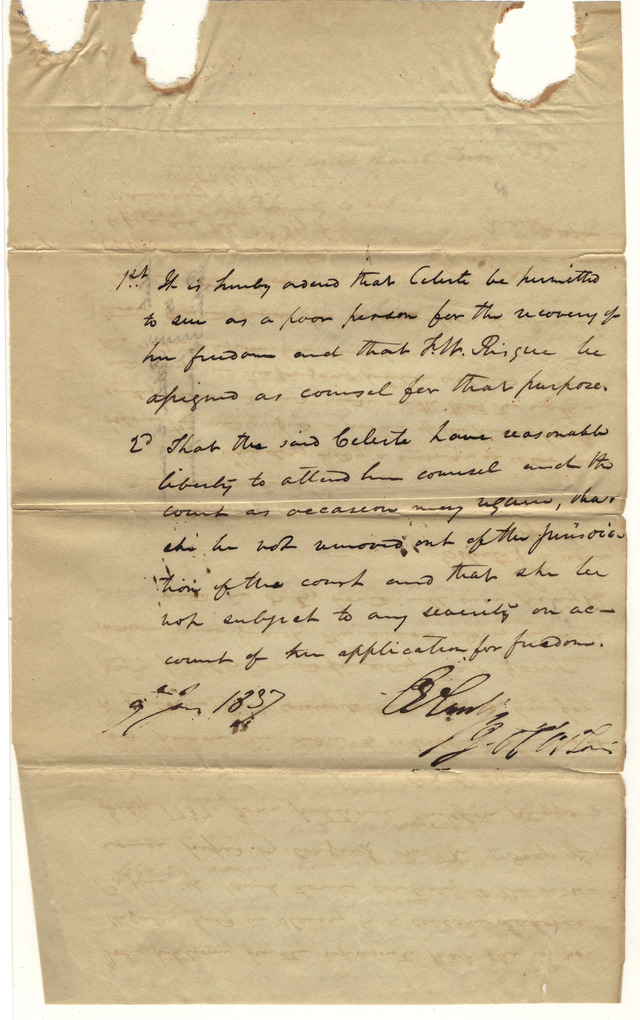 1st It is hereby ordered that Celeste be permitted
to sue as a poor person for the recovery of
her freedom and that F. W. Risque be
assigned as counsel for that purpose.
2d That the said Celeste have reasonable
liberty to attend her counsel and the
court as occasion may require, that
she be not removed out of the jurisdic
tion of the court and that she be
not subject to any severity on ac-
count of her application for freedom.
9th Jany 1837